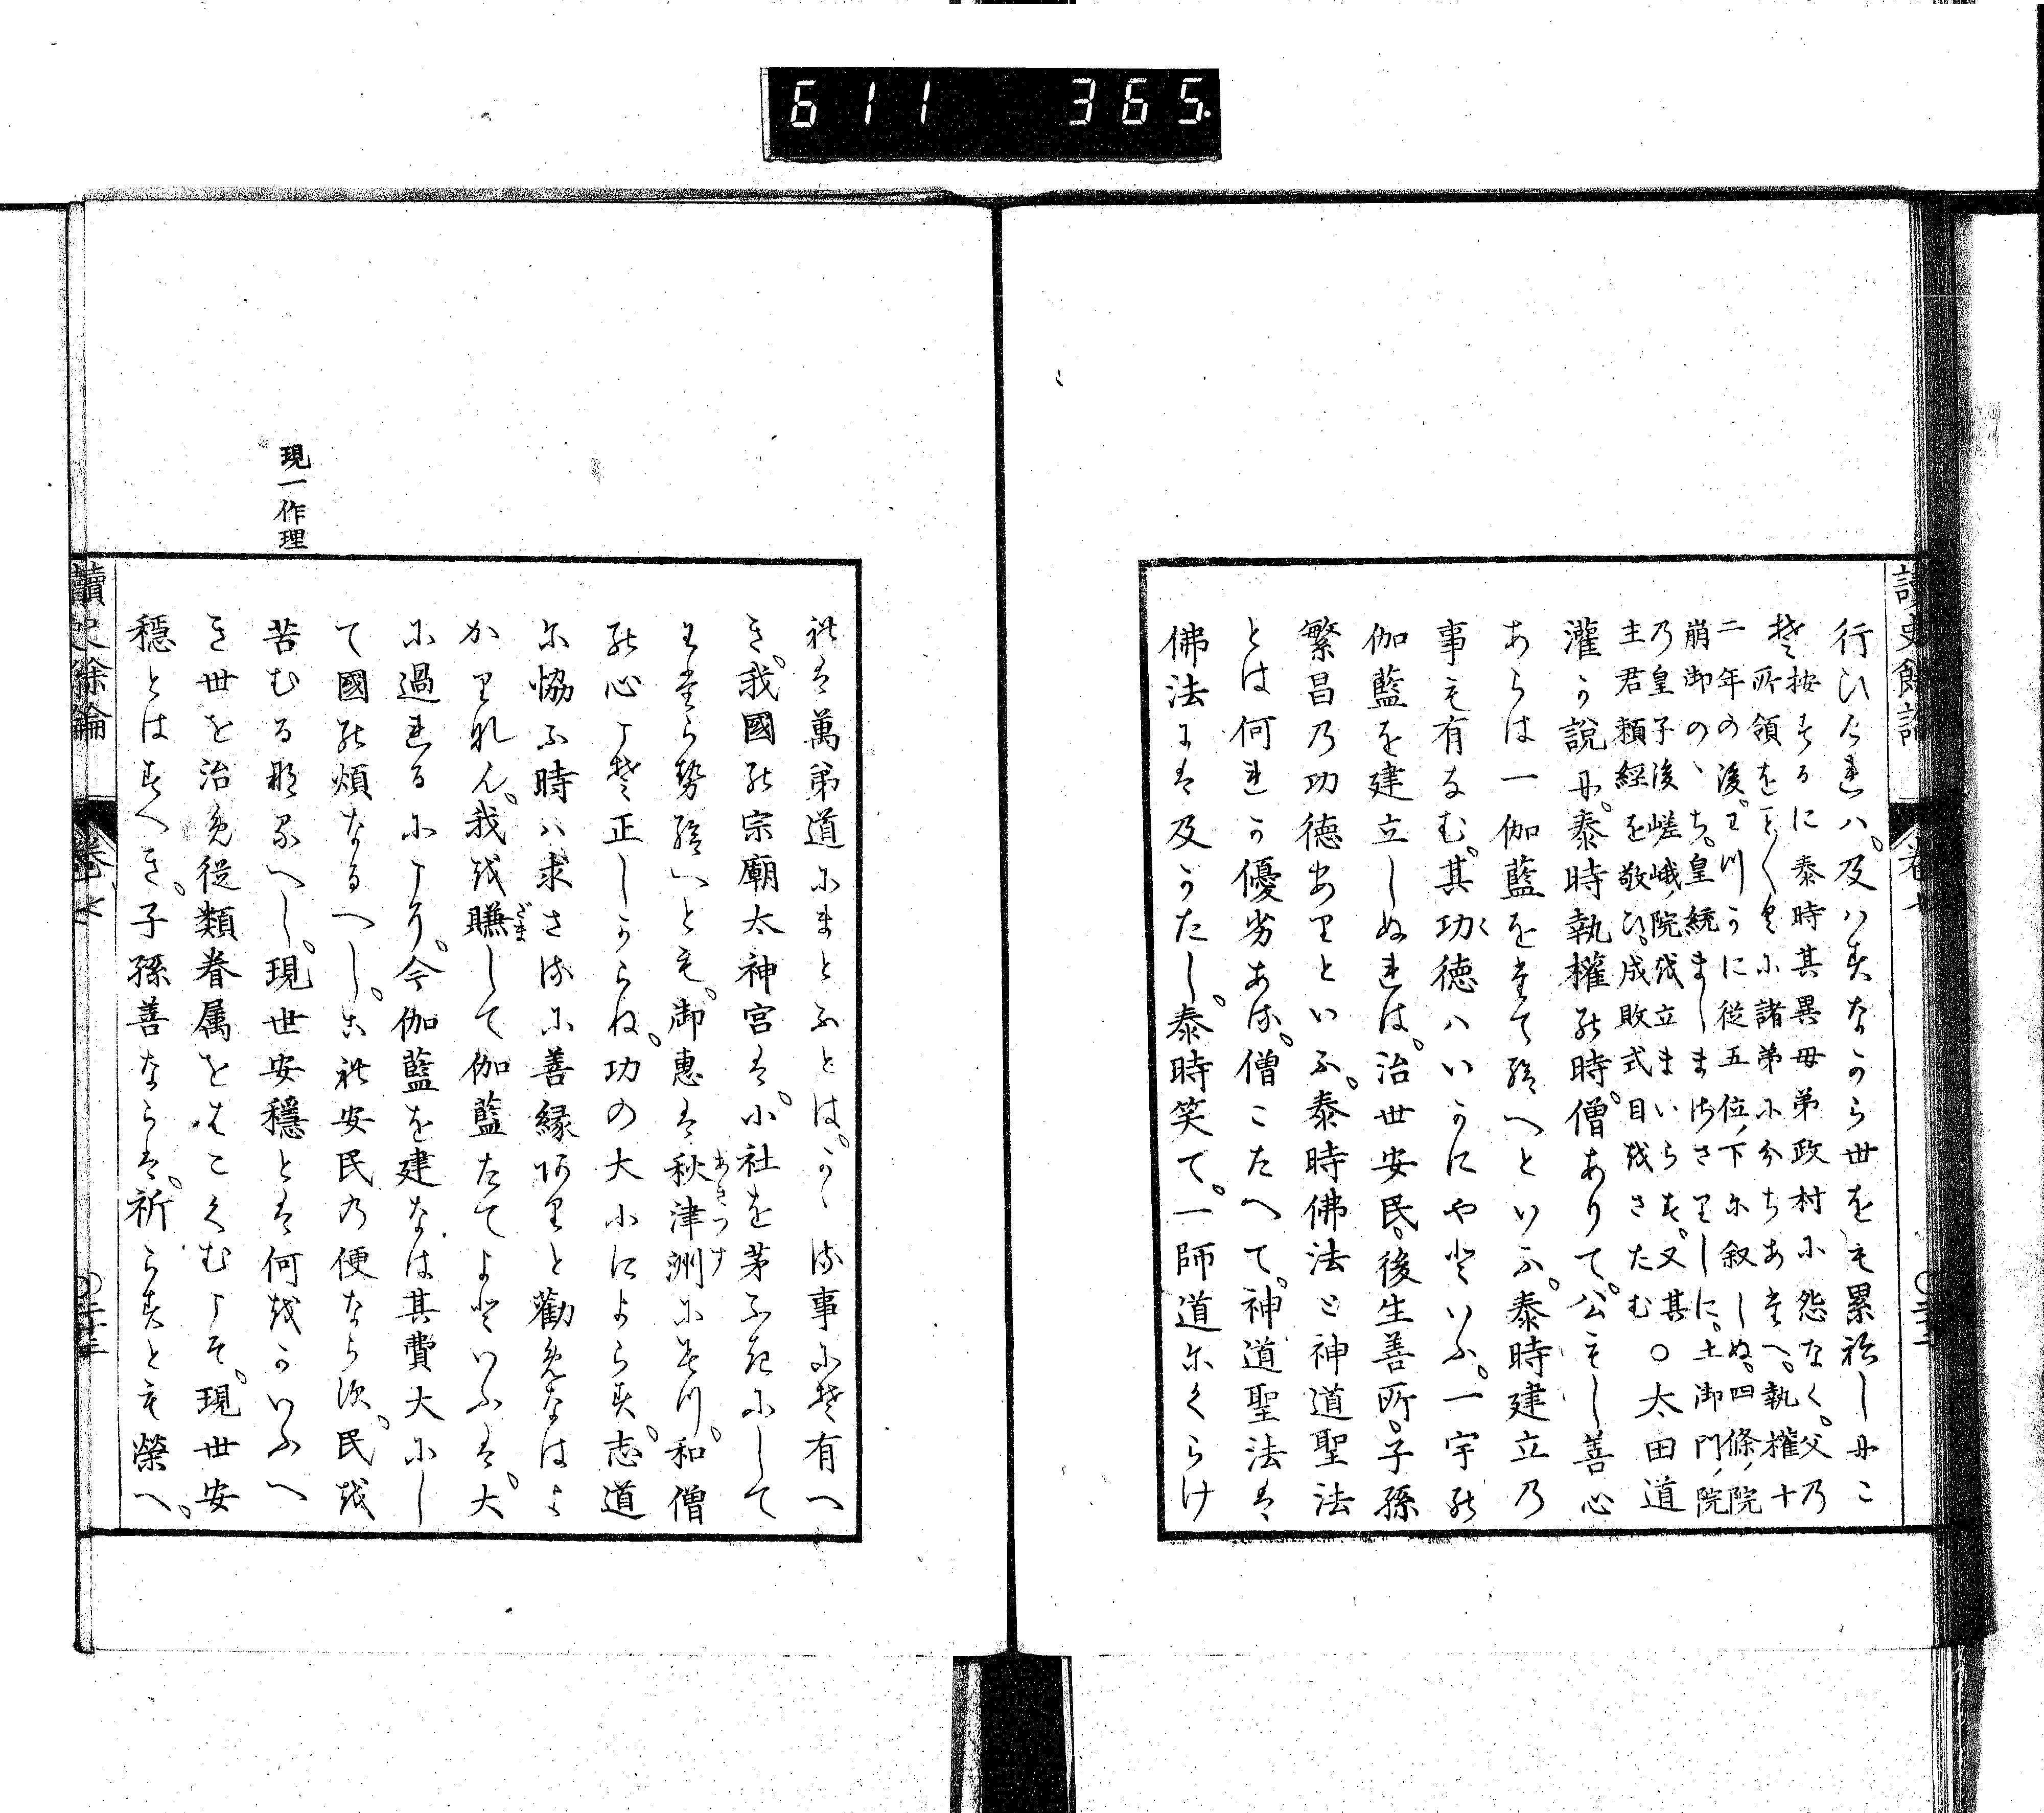 611 365.
讀史餘論
卷七
行ひしかれハ。及ハすなから世をも累ねしにこ
そ按するに泰時其異母弟政村に怨なく。父の
所領をことことく諸弟に分ちあたへ。執權十
二年の後。わつかに從五位下に叙しぬ。四條院
崩御のゝち。皇統ましまさゝりしに。土御門院
の皇子後嵯峨院を立まいらす。又其
主君賴經を敬ひ。成敗式目をさたむ○太田道
灌か說に。泰時執權の時。僧ありて。公もし善心
あらは一伽藍をたて給へといふ。泰時建立の
事も有なむ。其功德ハいかにやといふ。一宇の
伽藍を建立しぬれは。治世安民。後生善所。子孫
繁昌の功德ありといふ。泰時佛法と神道聖法
とは何れか優劣ある。僧こたへて。神道聖法は
佛法には及かたし。泰時笑て。一師道にくらけ
れは萬弟道にまとふとは。かゝる事にそ有へ
き。我國の宗廟太神宮は。小社を茅ふきにして
わたらせ給へとも。御惠は秋津洲にみつ。和僧
の心よそ正しからね。功の大小によらす。志道
に協ふ時ハ求さるに善縁ありと勸めなはよ
かりなん。我を賺して伽藍たてよといふは。大
に過れるにより。今伽藍を建なは其費大にし
て國の煩なるへし。これ安民の便ならす。民を
苦むる那へし。現世安穩とは何をかいふへ
き世を治め從類眷属をはこくむよそ。現世安
穩とはすへき。子孫善ならは。祈らすとも榮へ。
現一作理
讀史餘論
卷七